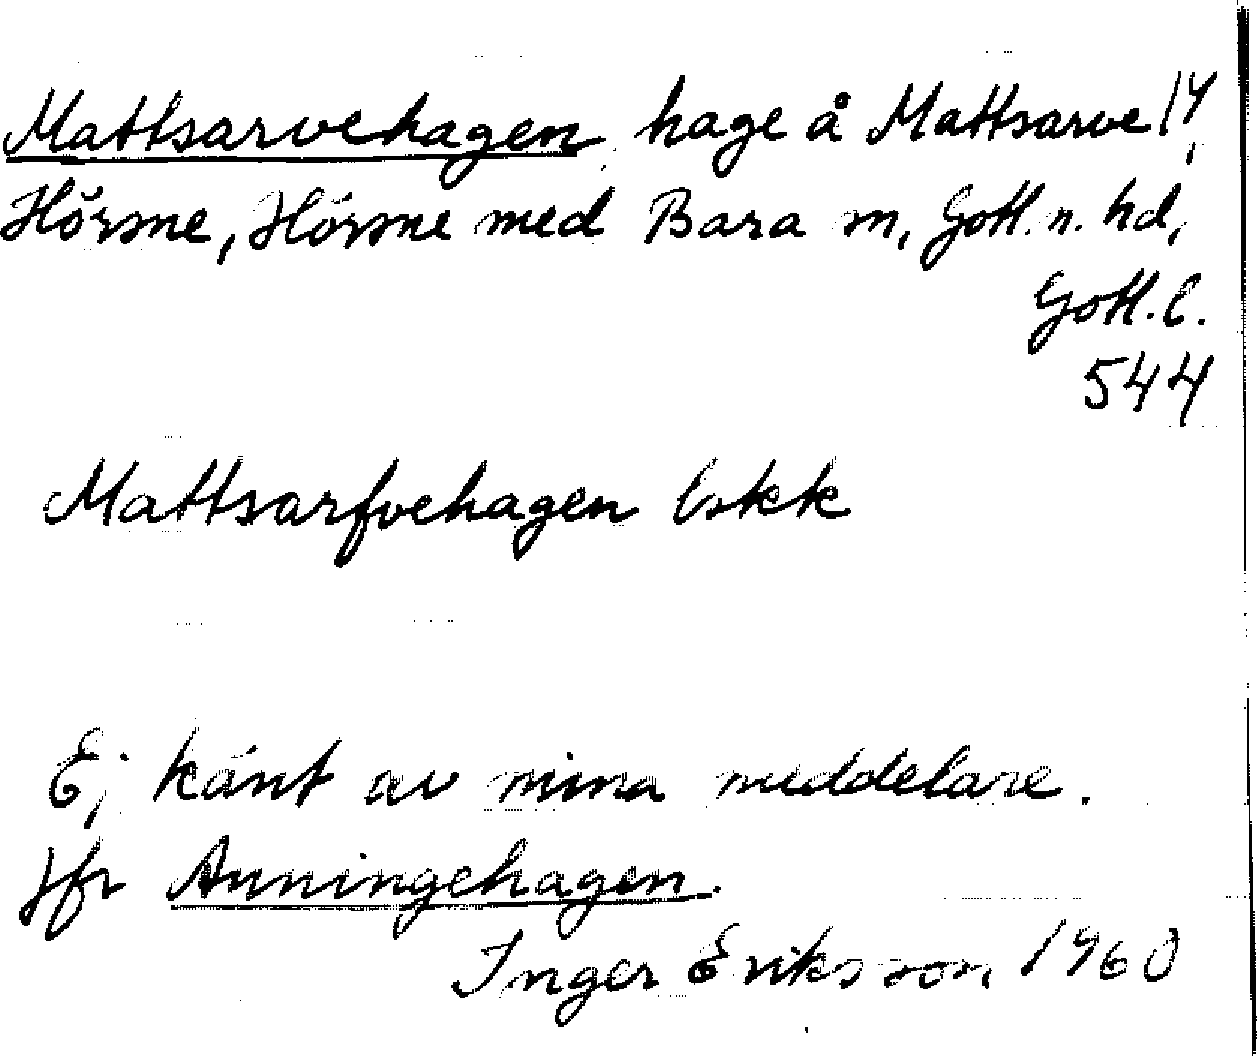 Mattsarvehagen, hage å Mattsarve 14,
Hörsne, Hörsne med Bara sn, Gotl. n. hd,
Gotl. l.
544
Mattsarfvehagen lskk
Ej känt av mina meddelare.
Jfr Anningehagen.
Inger Eriksson, 1960